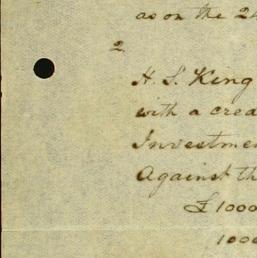 as on the 24
2
H. S. King
with a crea
Investmen
Against th
£1000
1000